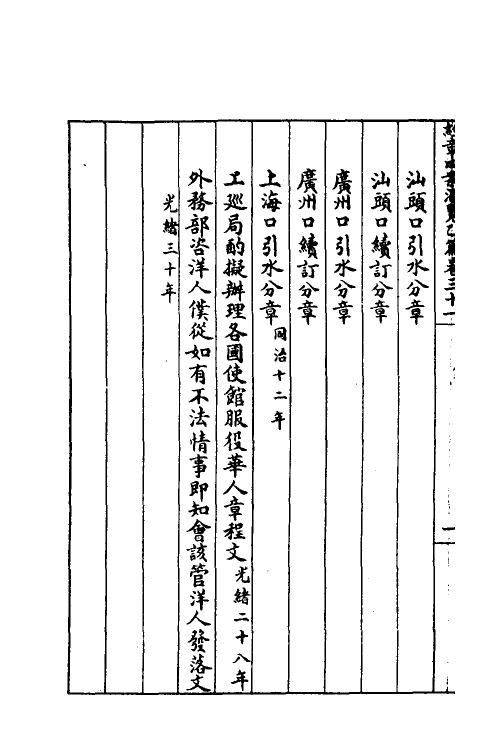 汕頭口引水分章
汕頭口續訂分章
廣州口引水分章
廣州口續訂分章
上海口引水分章同治十二年
工廵局酌擬辦理各國使館服役華人章程文光緒二十八年
外務部咨洋人僕從如有不法情事即知會該管洋人發落文
光緒三十年